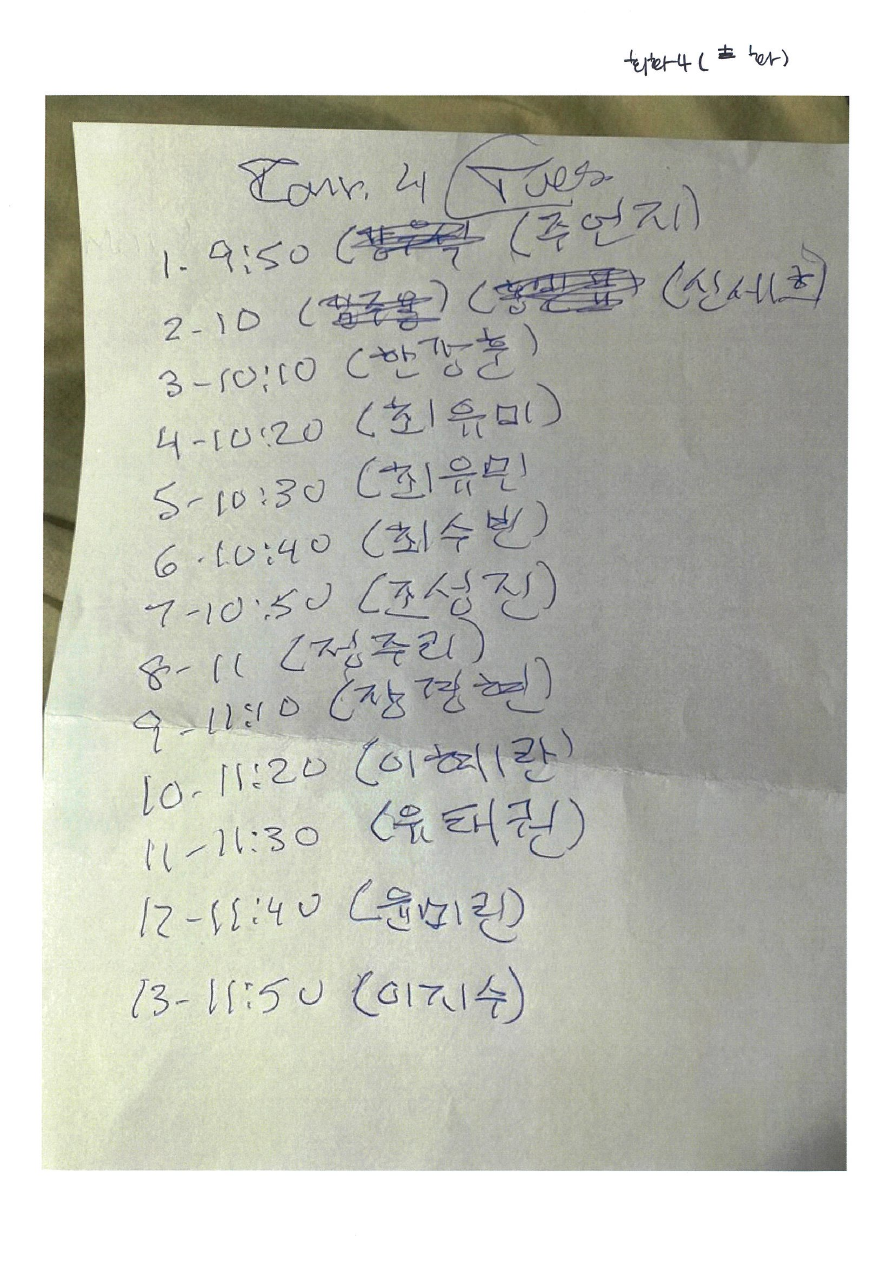 회화4 (
Conv. 4 (Tues
1. 9:50 (주언지)
2-10 (신세호)
3-10:10 (한광훈)
4-10:20 (최유미)
5-10:30 (최유민
6-10:40 (최수빈)
7-10:50 (조성진)
8-11 (정주리)
9-11:10 (장광현)
10-11:20 (이혜란)
11-11:30 (유태권)
12-11:40 (윤미린)
13-11:50 (이지수)